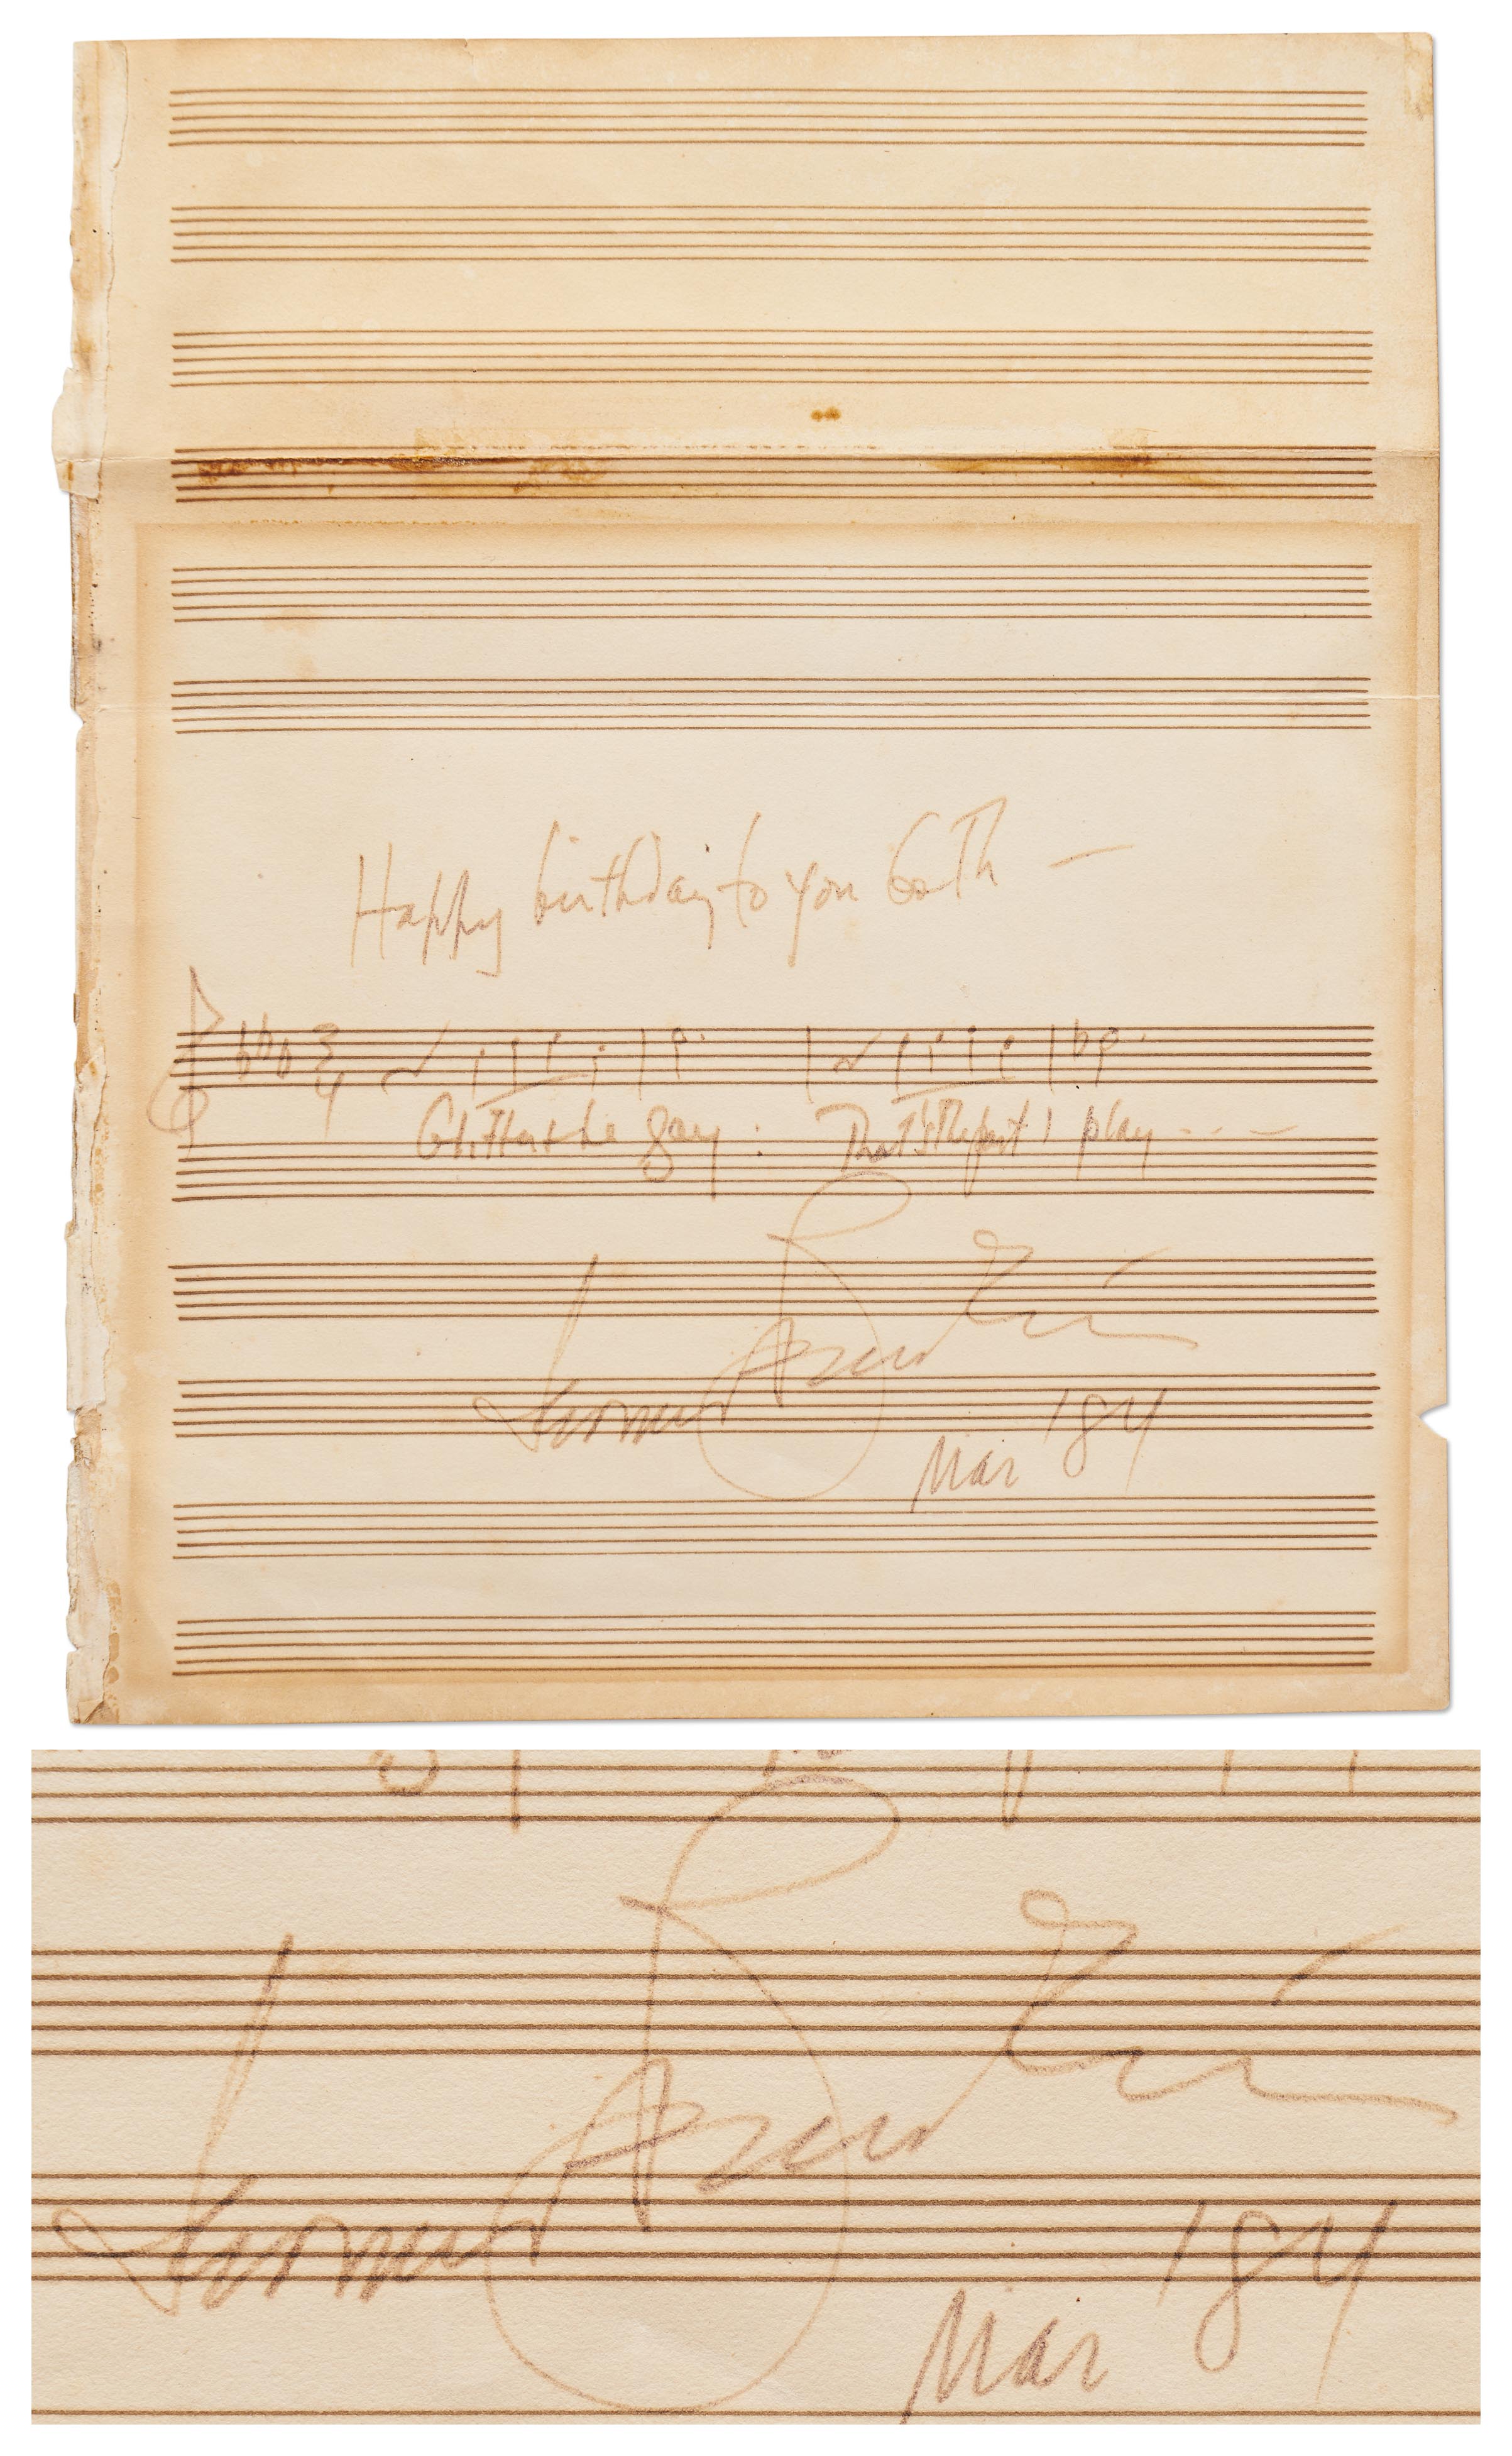 Happy birthday to you both —
3
4
Glitter & be gay : That's the part I play - - -
Leonard Bernstein
Mar '84
Leonard Bernstein
Mar '84